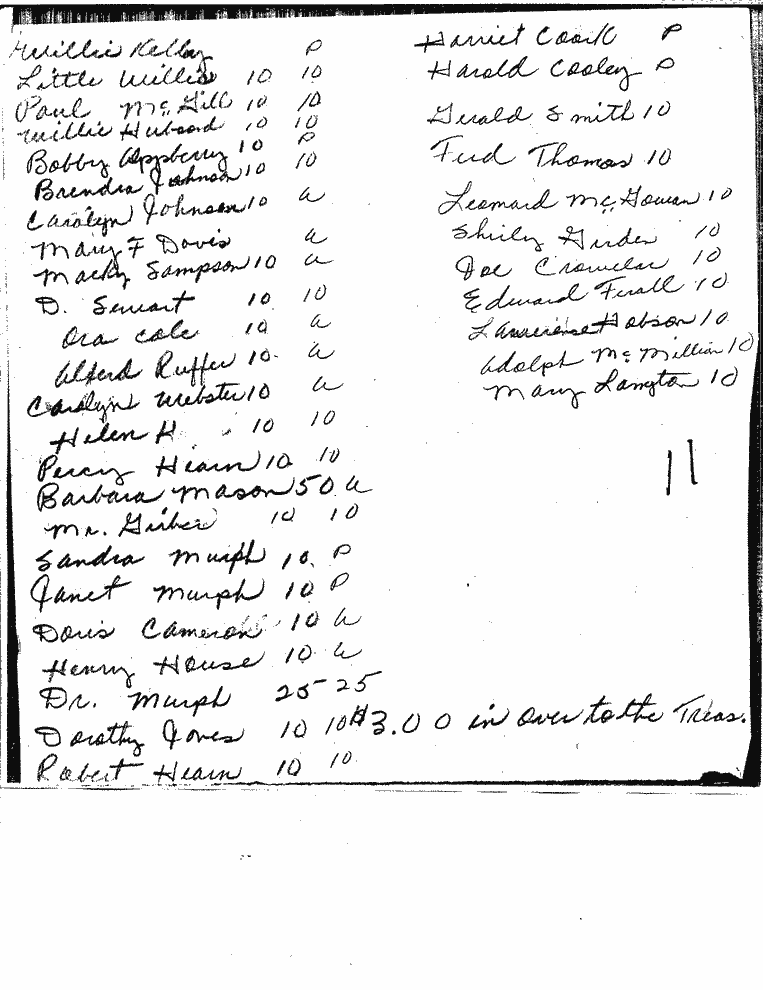 Willie Kelley P
Little Willie 10 10
Paul McGill 10 10
Willie Hubbard 10 10
Bobby Appberry 10 P
Brendra Johnson 10 10
Carolyn Johnson 10 a
Mary F Davis a
Macky Sampson 10 a
D. Stewart 10 10
Ora Cole 10 a
Alferd Ruffer 10 a
Carolyn Webster 10 a
Helen H. 10 10
Percy Hearn 10 10
Barbara Mason 50 a
Mr. 10 10
Sandra Murph 10 P
Janet Murph 10 P
Doris Cameron 10 a
Henry House 10 a
Dr. Murph 25 25
Dorothy Jones 10 10
Robert Hearn 10 10
Harriet Coark P
Harold Cooley P
Gerald Smith 10
Fred Thomas 10
Leonard McGowan 10
Shirly 10
Joe 10
Edward 10
Lawrence Hobson 10
Adolph McMillian 10
Mary Langton 10
11
$3.00 in over to the Treas.